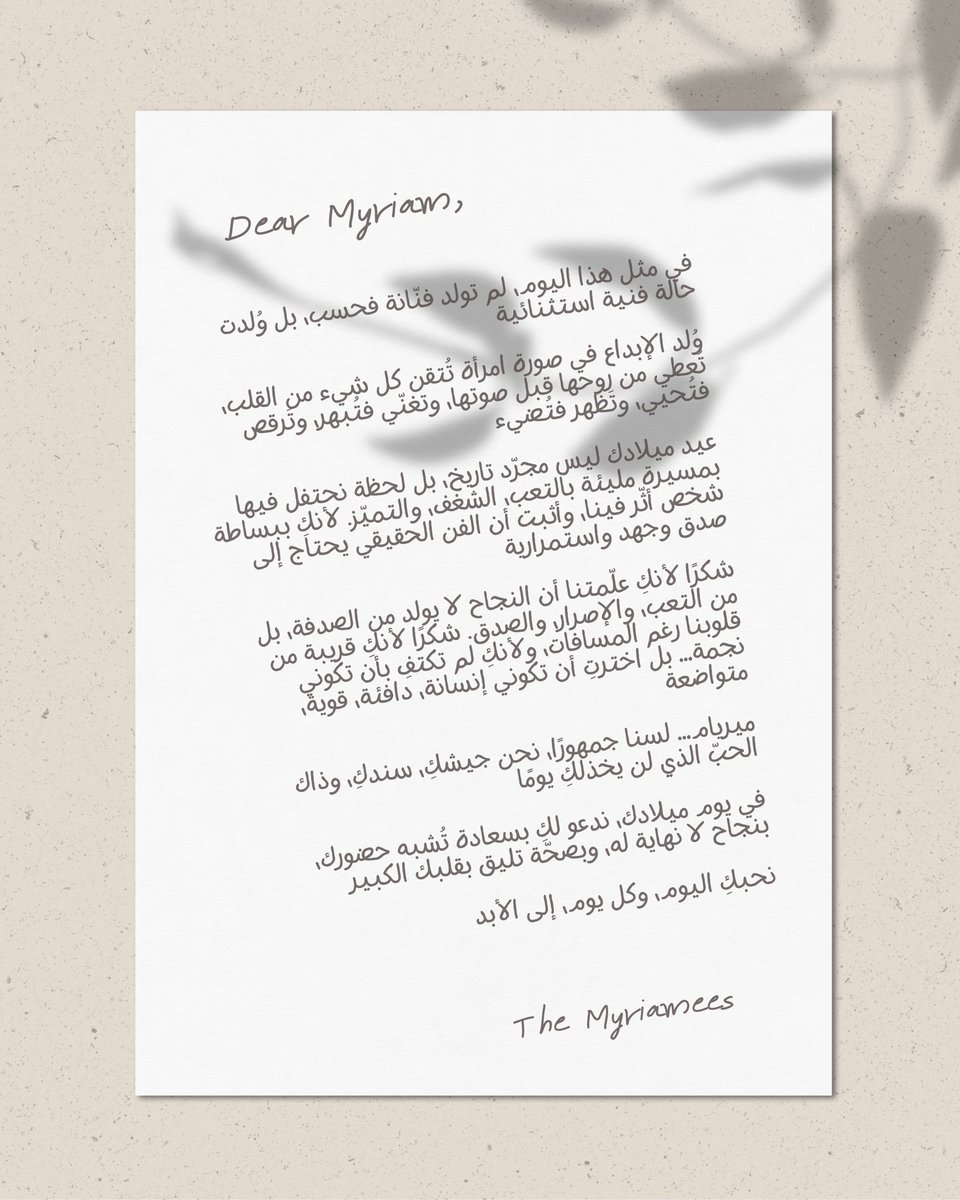 Dear Myriam,
في مثل هذا اليوم، لم تولد فنّانة فحسب، بل وُلدت
حالة فنية استثنائية
وُلد الإبداع في صورة امرأة تُتقن كل شيء من القلب،
تُعطي من روحها قبل صوتها، وتغنّي فتُبهر، وتَرقص
فتُحيي، وتَظهر فتُضيء
عيد ميلادك ليس مجرّد تاريخ، بل لحظة نحتفل فيها
بمسيرة مليئة بالتعب، الشغف، والتميّز. لأنكِ ببساطة
شخص أثّر فينا، وأثبت أن الفن الحقيقي يحتاج إلى
صدق وجهد واستمرارية
شكرًا لأنكِ علّمتنا أن النجاح لا يولد من الصدفة، بل
من التعب، والإصرار، والصدق. شكرًا لأنكِ قريبة من
قلوبنا رغم المسافات، ولأنكِ لم تكتفِ بأن تكوني
نجمة... بل اخترتِ أن تكوني إنسانة، دافئة، قوية،
متواضعة
ميريام... لسنا جمهورًا، نحن جيشكِ، سندكِ، وذاك
الحبّ الذي لن يخذلكِ يومًا
في يوم ميلادك، ندعو لكِ بسعادة تُشبه حضورك،
بنجاح لا نهاية له، وبصحّة تليق بقلبك الكبير
نحبكِ اليوم، وكل يوم، إلى الأبد
The Myriamees